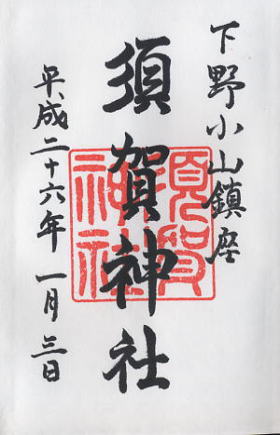 下野小山鎮座
須賀神社
須賀神社
平成二十六年一月三日